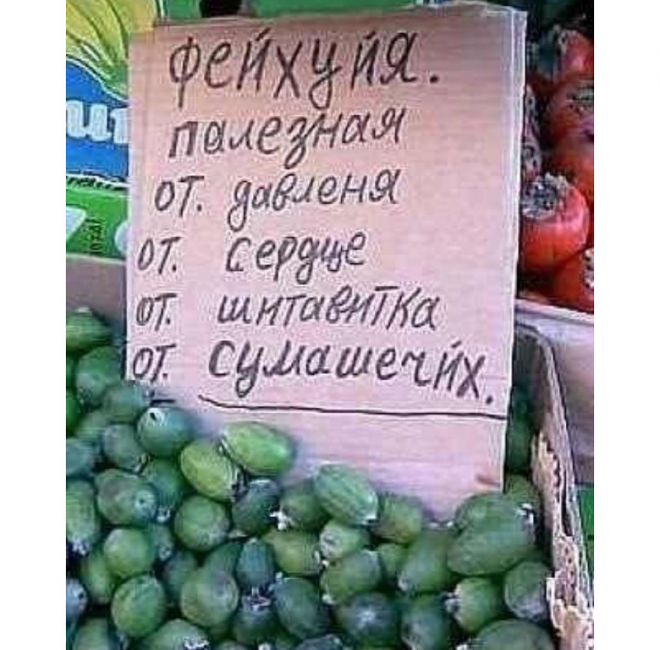 Фейхуйя.
палезная
от. давленя
от. Сердце
от. шитавитка
от. Сумашечйх.